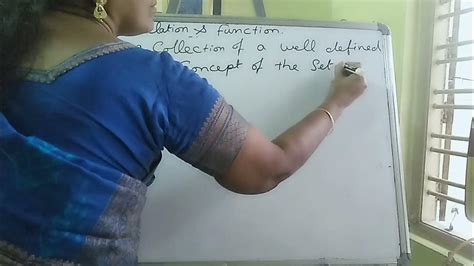 lation & function.
Collection of a well defined
Concept of the Set